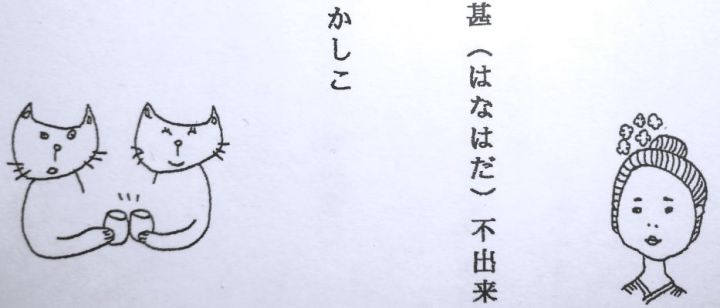 甚（はなはだ）不出来
かしこ